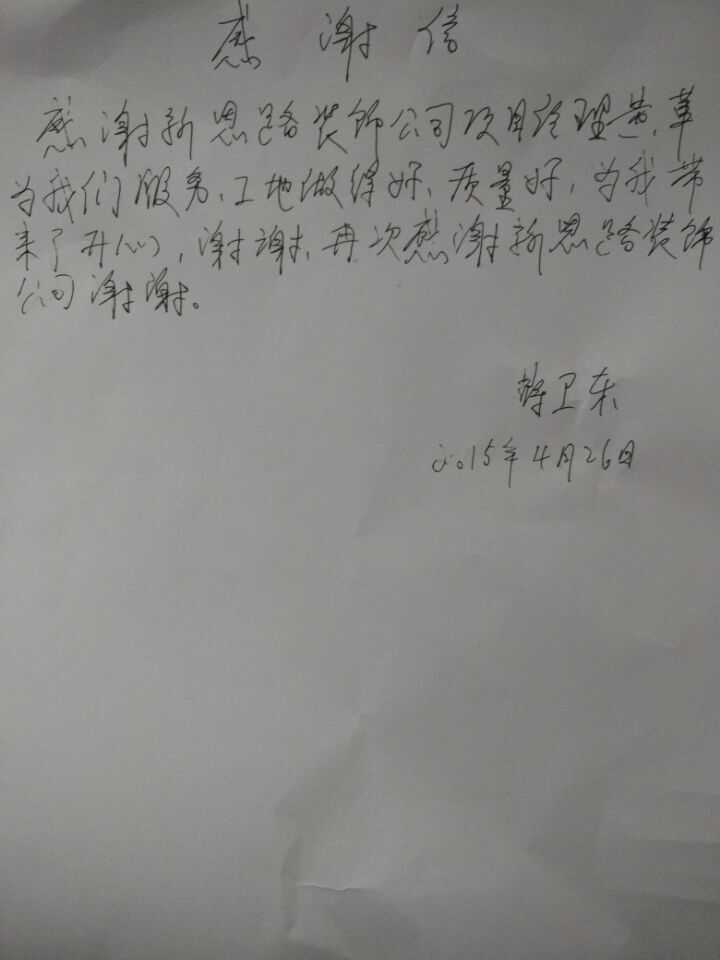 感谢信
感谢新思路装饰公司项目经理黄、革
为我们服务、工地做得好、质量好,为我带
来了开心,谢谢,再次感谢新思路装饰
公司谢谢。
卫东
2015年4月26日